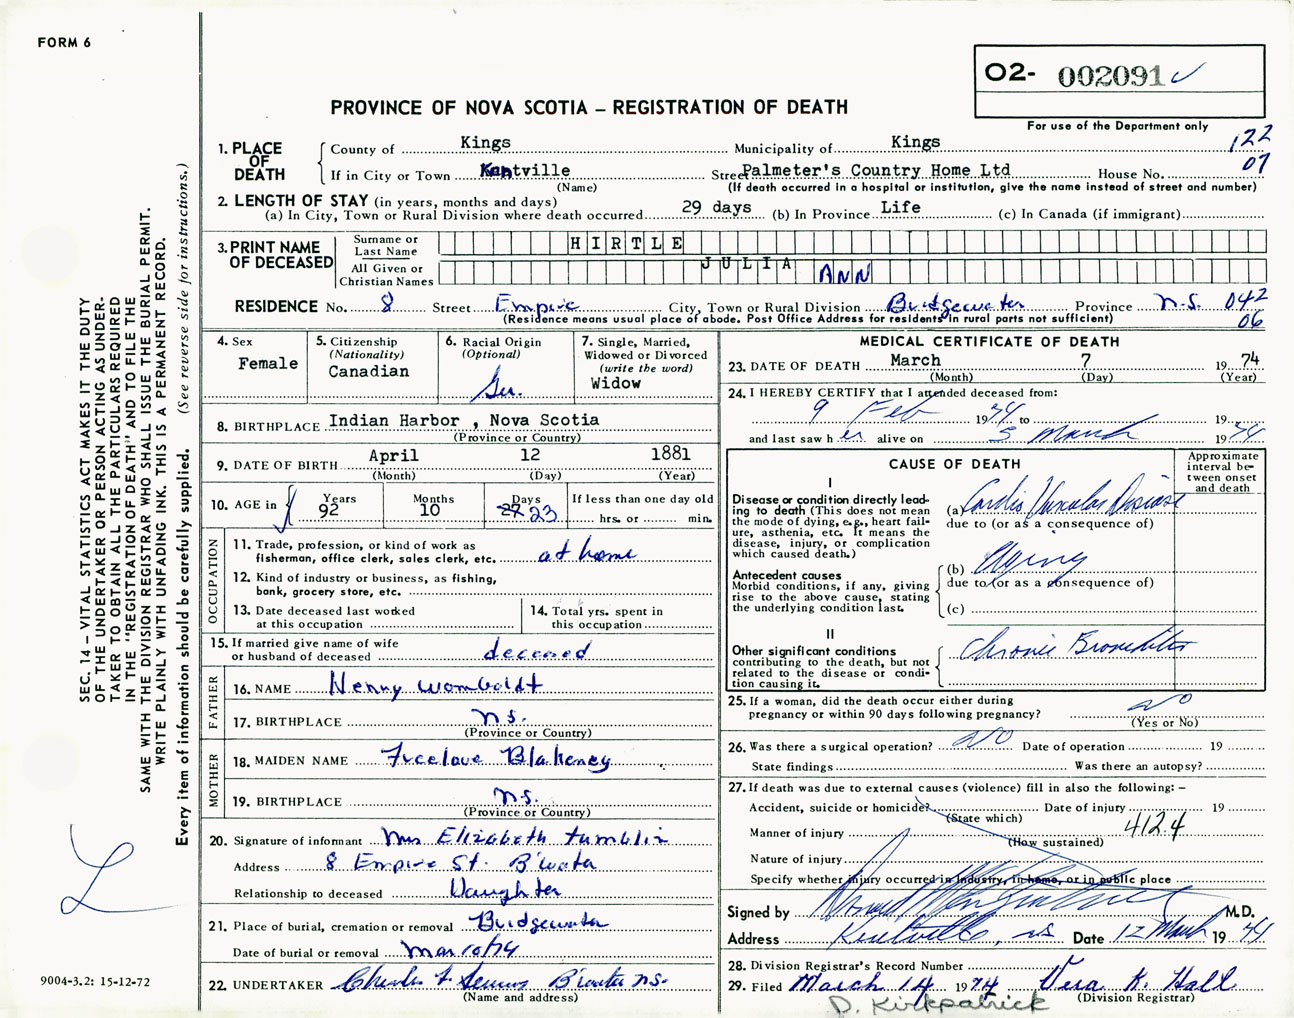 FORM 6
O2- 002091 ✓
PROVINCE OF NOVA SCOTIA – REGISTRATION OF DEATH
For use of the Department only
122
07
1. PLACE OF DEATH
County of Kings Municipality of Kings
If in City or Town Kentville Street Palmeter's Country Home Ltd House No.
(Name) (If death occurred in a hospital or institution, give the name instead of street and number)
2. LENGTH OF STAY (in years, months and days)
(a) In City, Town or Rural Division where death occurred 29 days (b) In Province Life (c) In Canada (if immigrant)
3. PRINT NAME OF DECEASED
Surname or Last Name HIRTLE
All Given or Christian Names JULIA ANN
RESIDENCE No. 8 Street Empire City, Town or Rural Division Bridgewater Province N.S. 042
(Residence means usual place of abode. Post Office Address for residents in rural parts not sufficient) 06
4. Sex
Female
5. Citizenship
(Nationality)
Canadian
6. Racial Origin
(Optional)
Ger.
7. Single, Married,
Widowed or Divorced
(write the word)
Widow
8. BIRTHPLACE Indian Harbor , Nova Scotia
(Province or Country)
9. DATE OF BIRTH April 12 1881
(Month) (Day) (Year)
10. AGE in Years 92 Months 10 Days 27 23
If less than one day old
hrs. or min.
OCCUPATION
11. Trade, profession, or kind of work as
fisherman, office clerk, sales clerk, etc. at home
12. Kind of industry or business, as fishing,
bank, grocery store, etc.
13. Date deceased last worked
at this occupation
14. Total yrs. spent in
this occupation
15. If married give name of wife
or husband of deceased deceased
FATHER
16. NAME Henry Womboldt
17. BIRTHPLACE N.S.
(Province or Country)
MOTHER
18. MAIDEN NAME Freelove Blakeney
19. BIRTHPLACE N.S.
(Province or Country)
20. Signature of informant Mrs Elizabeth Tumblin
Address 8 Empire St. B'water
Relationship to deceased Daughter
21. Place of burial, cremation or removal Bridgewater
Date of burial or removal Mar 10/74
22. UNDERTAKER Charles B'water N.S.
(Name and address)
MEDICAL CERTIFICATE OF DEATH
23. DATE OF DEATH March 7 19 74
(Month) (Day) (Year)
24. I HEREBY CERTIFY that I attended deceased from:
9 Feb 1974 to 19
and last saw her alive on 5 March 1974
CAUSE OF DEATH
Approximate
interval be-
tween onset
and death
I
Disease or condition directly lead-
ing to death (This does not mean
the mode of dying, e.g., heart fail-
ure, asthenia, etc. It means the
disease, injury, or complication
which caused death.)
(a) Cardio Vascular Disease
due to (or as a consequence of)
Antecedent causes
Morbid conditions, if any, giving
rise to the above cause, stating
the underlying condition last.
(b) Aging
due to (or as a consequence of)
(c)
II
Other significant conditions
contributing to the death, but not
related to the disease or condi-
tion causing it.
Chronic Bronchitis
25. If a woman, did the death occur either during
pregnancy or within 90 days following pregnancy? No
(Yes or No)
26. Was there a surgical operation? No Date of operation 19
State findings Was there an autopsy?
27. If death was due to external causes (violence) fill in also the following: –
Accident, suicide or homicide? Date of injury 19
(State which)
Manner of injury 412.4
(How sustained)
Nature of injury
Specify whether injury occurred in industry, in home, or in public place
Signed by M.D.
Address Kentville, NS Date 12 March 19 74
28. Division Registrar's Record Number
29. Filed March 14 1974 Vera K. Hall
(Division Registrar)
D. Kirkpatrick
SEC. 14 – VITAL STATISTICS ACT MAKES IT THE DUTY
OF THE UNDERTAKER OR PERSON ACTING AS UNDER-
TAKER TO OBTAIN ALL THE PARTICULARS REQUIRED
IN THE "REGISTRATION OF DEATH" AND TO FILE THE
SAME WITH THE DIVISION REGISTRAR WHO SHALL ISSUE THE BURIAL PERMIT.
WRITE PLAINLY WITH UNFADING INK. THIS IS A PERMANENT RECORD.
Every item of information should be carefully supplied. (See reverse side for instructions.)
L
9004-3.2: 15-12-72